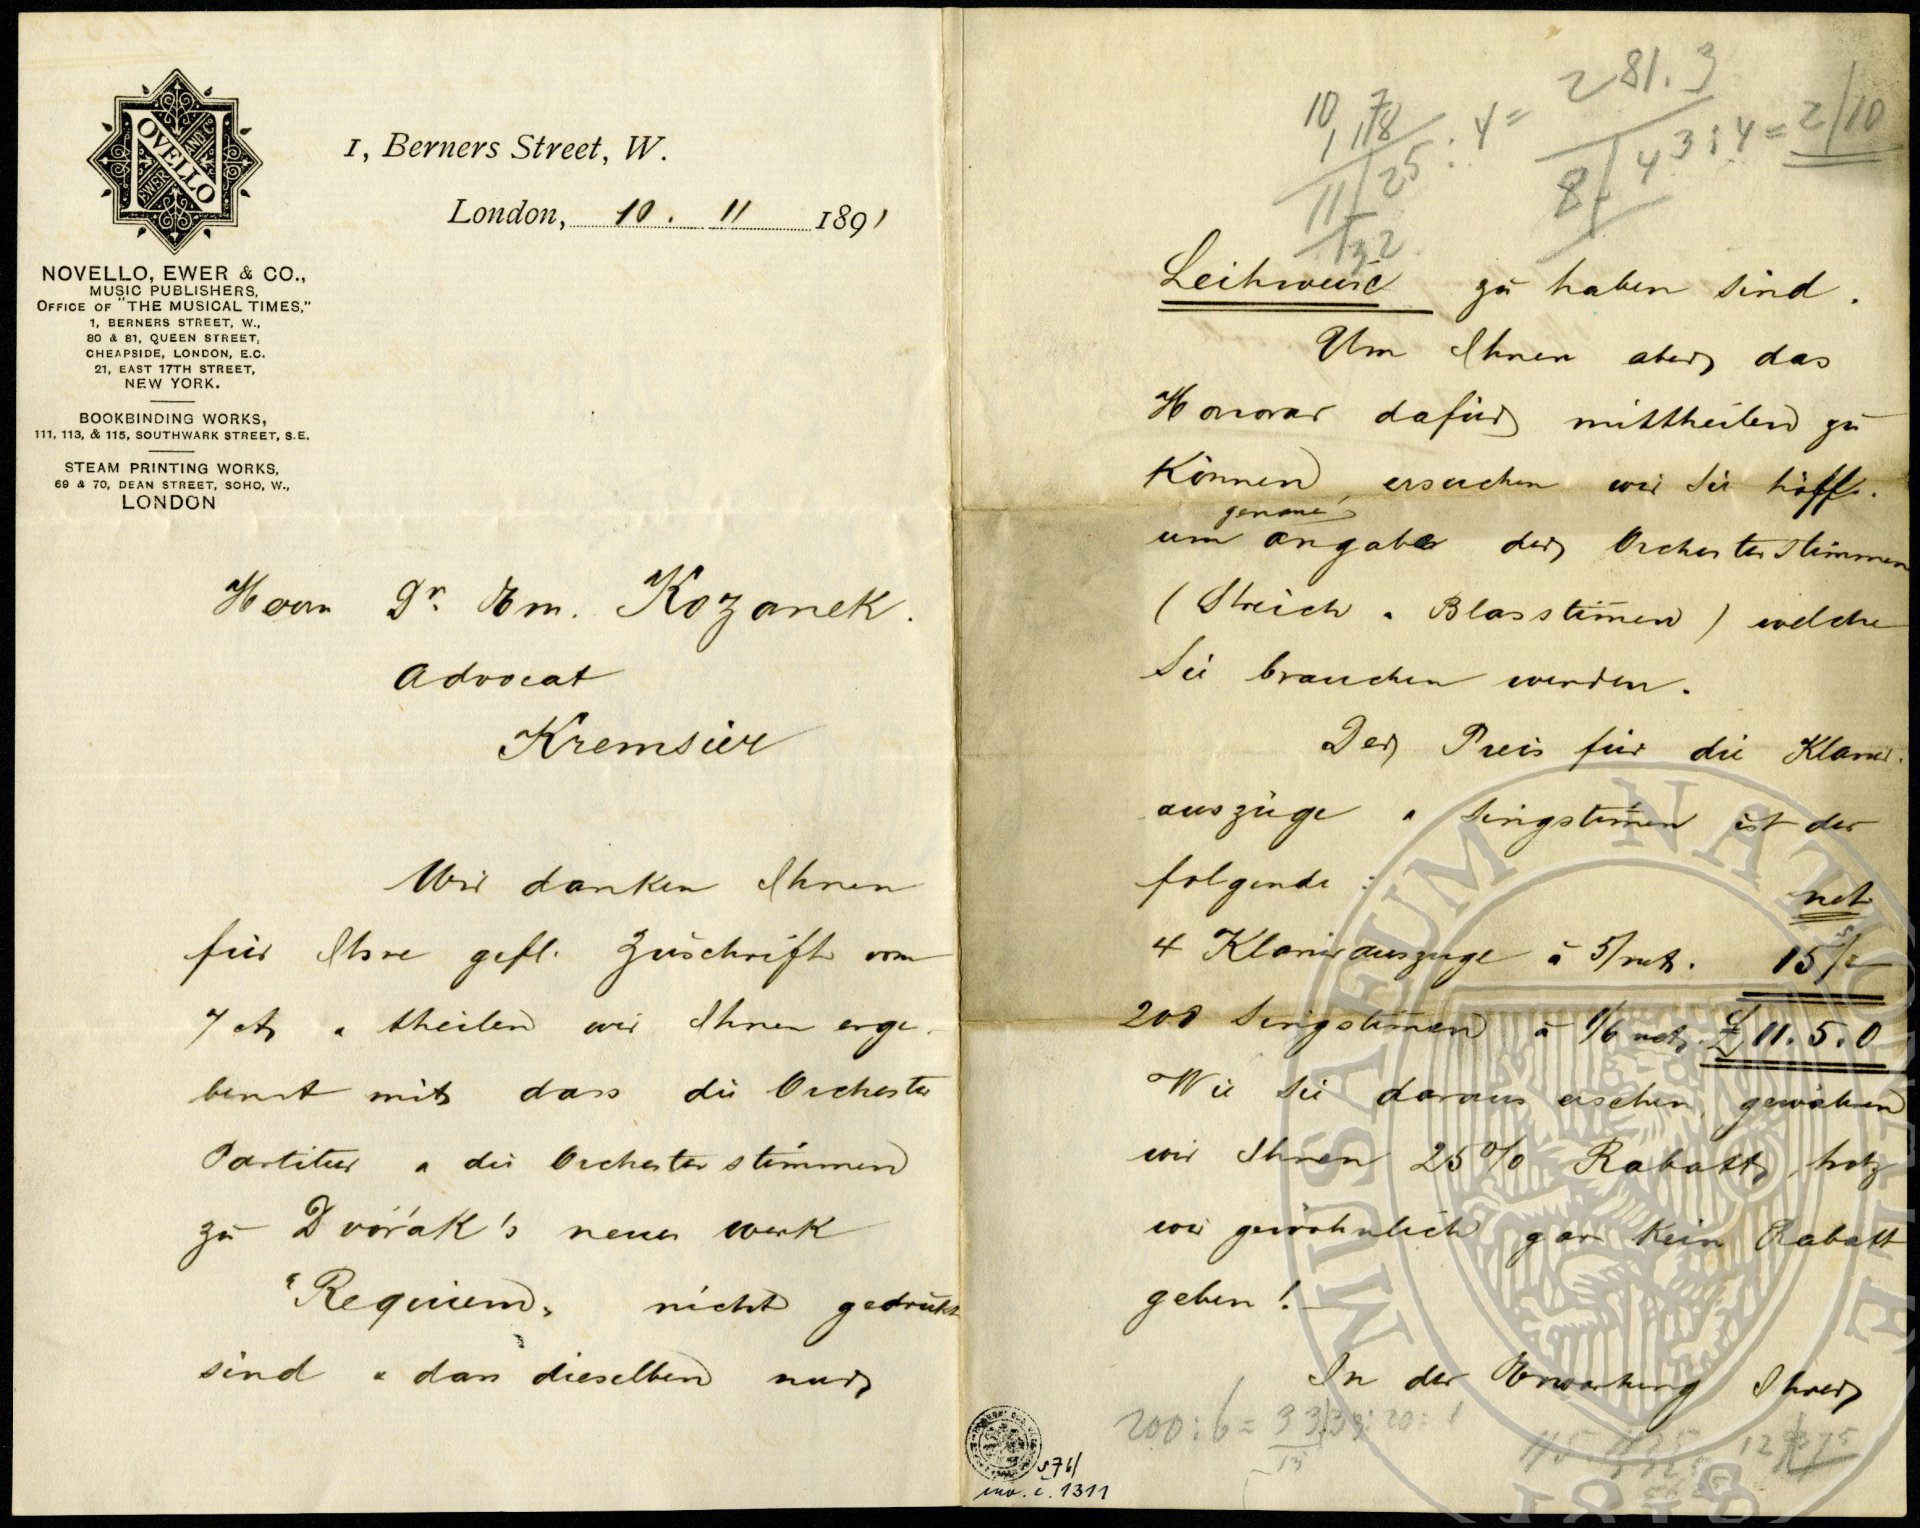 NOVELLO
EWER AND CO
1, Berners Street, W.
London, 10. 11 1891
NOVELLO, EWER & CO.,
MUSIC PUBLISHERS,
OFFICE OF "THE MUSICAL TIMES,"
1, BERNERS STREET, W.,
80 & 81, QUEEN STREET,
CHEAPSIDE, LONDON, E.C.
21, EAST 17TH STREET,
NEW YORK.
BOOKBINDING WORKS,
111, 113, & 115, SOUTHWARK STREET, S.E.
STEAM PRINTING WORKS,
69 & 70, DEAN STREET, SOHO, W.,
LONDON
Herrn Dr. Em. Kozanek.
Advocat
Kremsier
Wir danken Ihnen
für Ihre gefl. Zuschrift vom
7 ct. & theilen wir Ihnen erge-
benst mit dass die Orchester
Partitur & die Orchesterstimmen
zu Dvořák's neues werk
"Requiem" nicht gedrukt
sind & dass dieselben nur
576/
inv. č. 1311
281.3
10,78
11/25 : 4 =
8/43 : 4 = 2/10
132
Leihweise zu haben sind.
Um Ihnen aber das
Honorar dafür mittheilen zu
können, ersuchen wir Sie höffl.
genaue
um angabe der Orchesterstimmen
(Streich & Blasstimmen) welche
Sie brauchen werden.
Der Preis für die Klavier-
auszüge & Singstimmen ist der
folgende :
net
4 Klavierauszüge à 5/ net. 15/-
200 Singstimmen à 1/6 net. £ 11.5.0
Wie Sie daraus ersehen, gewähren
wir Ihnen 25% Rabatt, trotz
wir gewöhnlich gar kein Rabatt
geben!
In der Erwartung Ihrer
200 : 6 = 33/33 : 20 :
MUSAEUM NATIONALE
1818